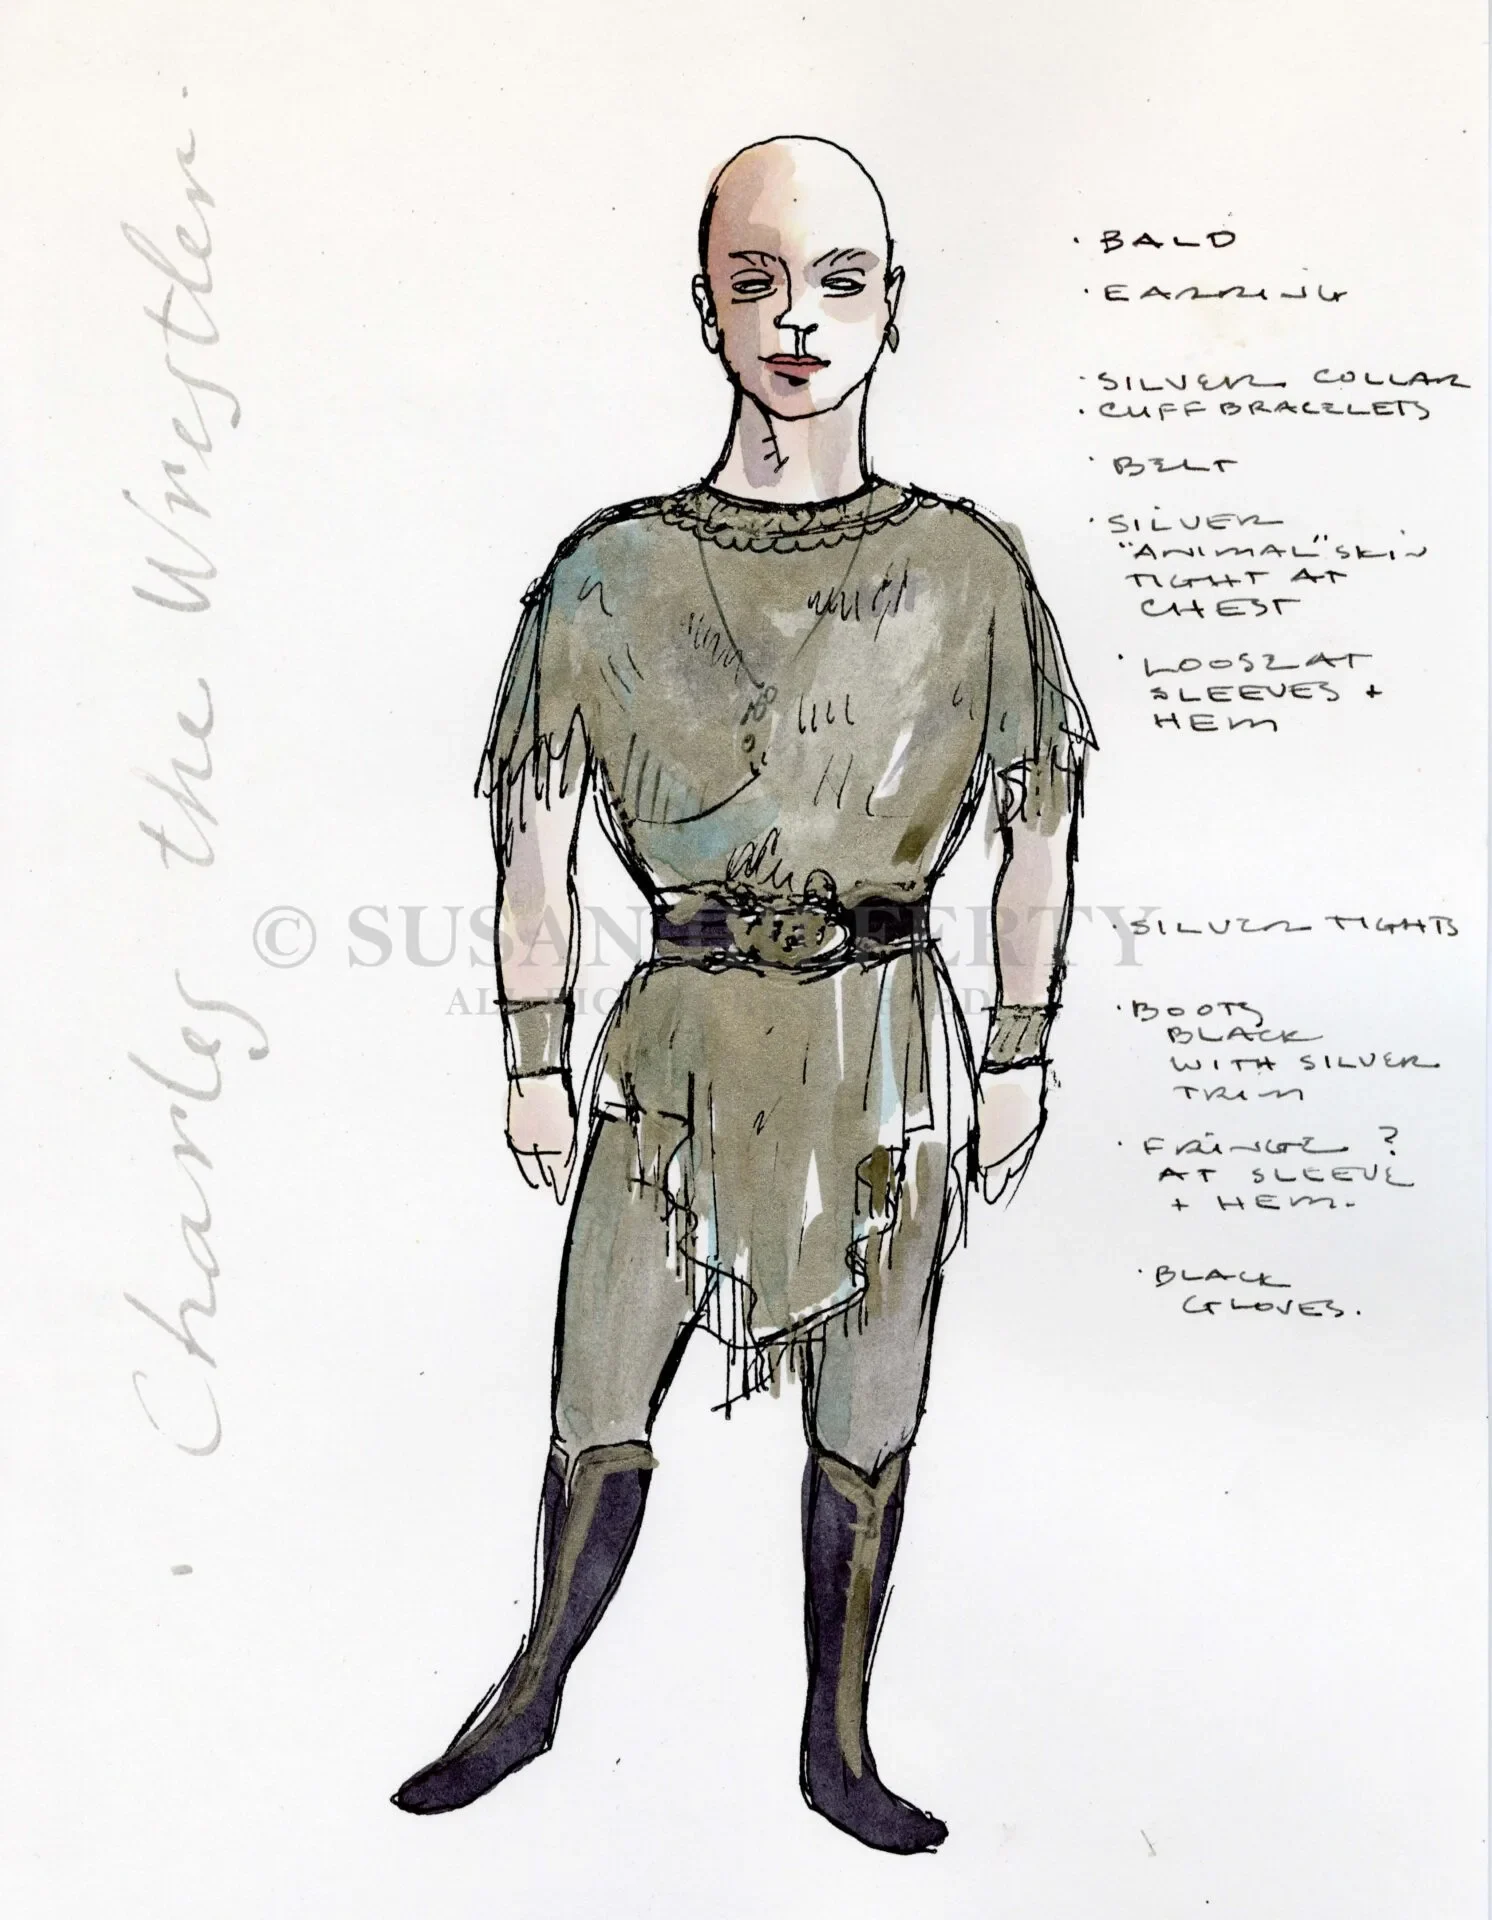 · Charles the Wrestler ·
· BALD
· EARRING
· SILVER COLLAR
· CUFF BRACELETS
· BELT
· SILVER
"ANIMAL" SKIN
TIGHT AT
CHEST
· LOOSE AT
SLEEVES +
HEM
· SILVER TIGHTS
· BOOTS
BLACK
WITH SILVER
TRIM
· FRINGE ?
AT SLEEVE
+ HEM.
· BLACK
GLOVES.
© SUSAN